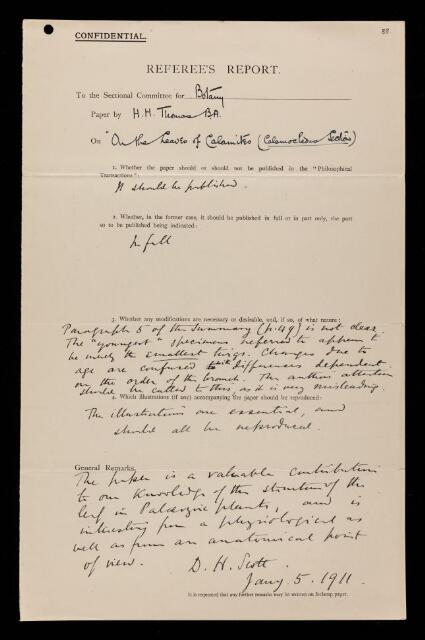 CONFIDENTIAL.
88
REFEREE'S REPORT.
To the Sectional Committee for Botany
Paper by H. H. Thomas B.A.
On "On the Leaves of Calamites (Calamocladus Section)
1. Whether the paper should or should not be published in the "Philosophical
Transactions":
It should be published.
2. Whether, in the former case, it should be published in full or in part only, the part
so to be published being indicated:
In full
3. Whether any modifications are necessary or desirable, and, if so, of what nature:
Paragraph 5 of the Summary (p. 49) is not clear.
The "youngest" specimens referred to appear to
be merely the smallest twigs. Changes due to
age are confused with differences dependent
on the order of the branch. The author's attention
should be called to this, as it is very misleading.
4. Which illustrations (if any) accompanying the paper should be reproduced:
The illustrations are essential, and
should all be reproduced.
General Remarks.
The paper is a valuable contribution
to our knowledge of the structure of the
leaf in Palæozoic plants, and is
interesting from a physiological as
well as from an anatomical point
of view. D. H. Scott.
Jany. 5. 1911.
It is requested that any further remarks may be written on foolscap paper.